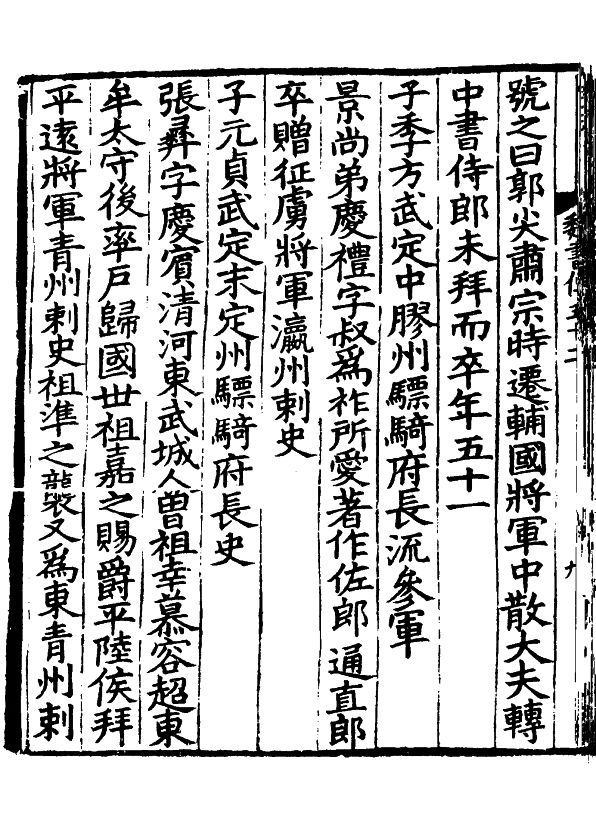 號之曰郭尖肅宗時遷輔國將軍中散大夫轉
中書侍郎未拜而卒年五十一
子季方武定中膠州驃騎府長流參軍
景尚弟慶禮字叔爲祚所愛著作佐郎通直郎
卒贈征虜將軍瀛州刺史
子元貞武定末定州驃騎府長史
張彞字慶賓清河東武城人曾祖幸慕容超東
牟太守後率戶歸國世祖嘉之賜爵平陸侯拜
平遠將軍青州刺史祖準之襲又爲東青州刺